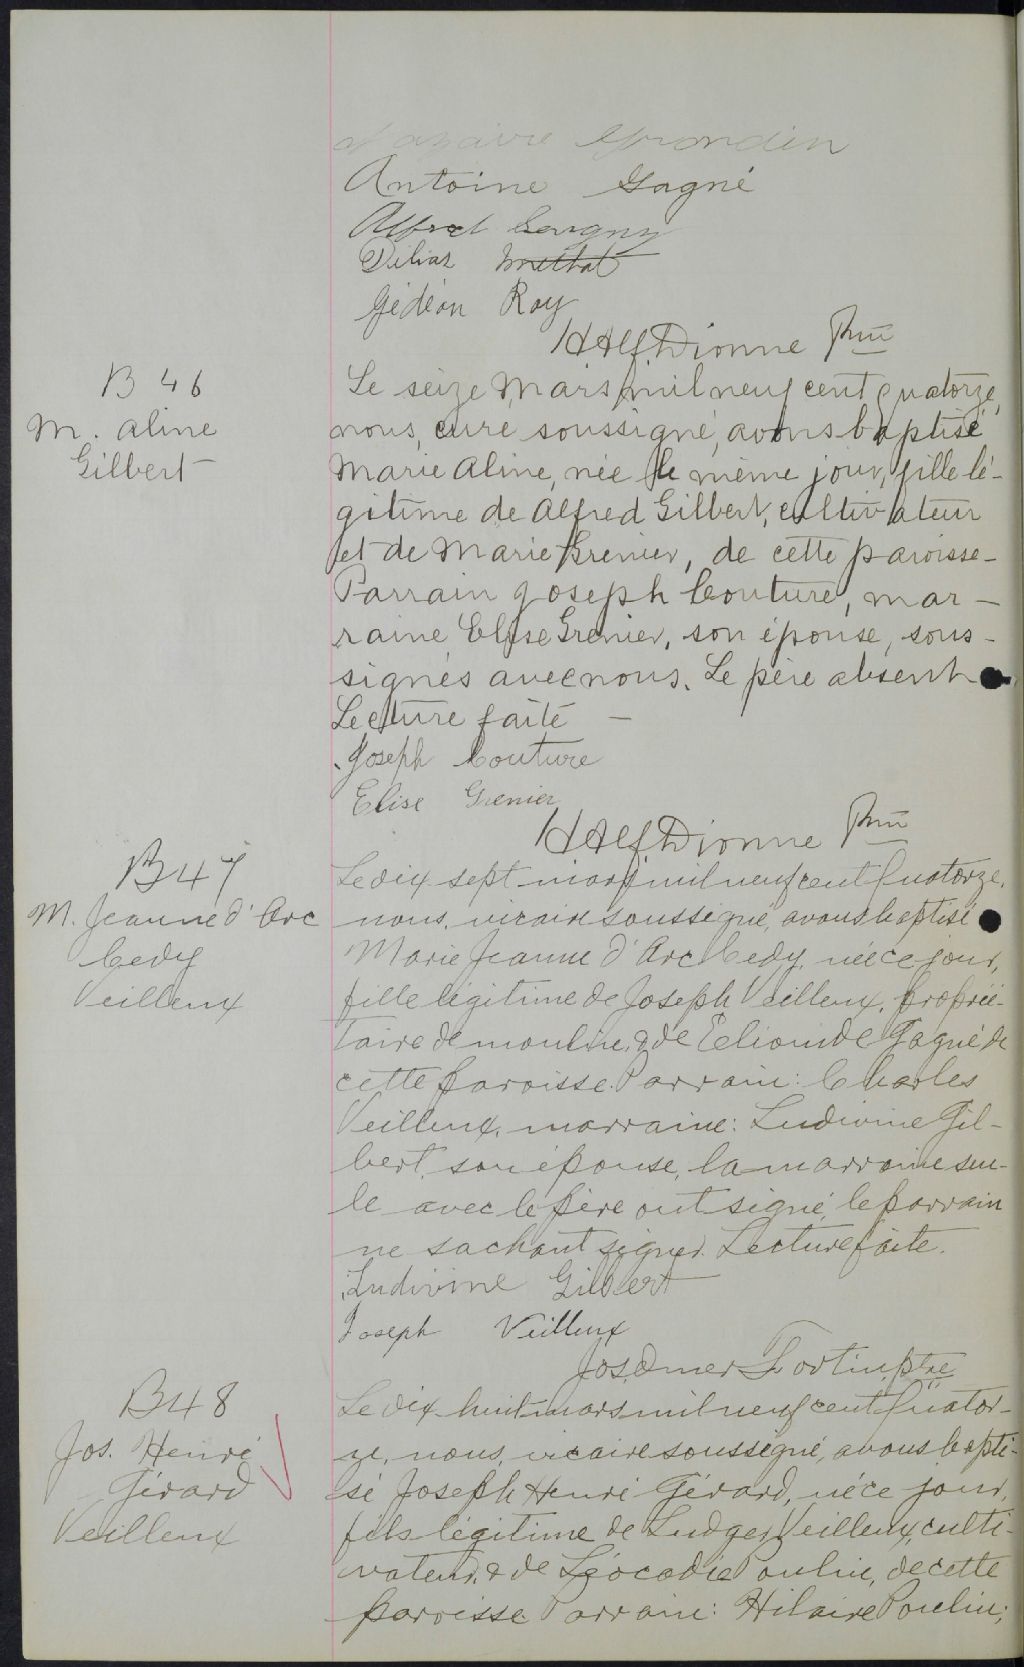 Nazaire Grondin
Antoine Gagné
Alfred
Gédéon Roy
HAlfDionne Ptre
B 46
M. Aline
Gilbert
Le seize mars mil neuf cent quatorze,
nous, curé soussigné, avons baptisé
Marie Aline, née le même jour, fille lé-
gitime de Alfred Gilbert, cultivateur
et de Marie Grenier, de cette paroisse-
Parrain Joseph Couture, mar-
raine Elise Grenier, son épouse, sous-
signés avec nous. Le père absent
Lecture faite -
Joseph Couture
Elise Grenier
HAlfDionne Ptre
B 47
M. Jeanne d'Arc
Cedy
Veilleux
Le dix sept mars mil neuf cent quatorze,
nous, vicaire soussigné, avons baptisé
Marie Jeanne d'Arc Cedy, née ce jour,
fille légitime de Joseph Veilleux, proprié-
taire de moulin, & de Gagné de
cette paroisse. Parrain: Charles
Veilleux, marraine: Ludivine Gil-
bert, son épouse, la marraine seu-
le avec le père ont signé, le parrain
ne sachant signer. Lecture faite.
Ludivine Gilbert
Joseph Veilleux
Jos. Omer Fortin, ptre
B 48
Jos. Henri
Gérard
Veilleux
Le dix-huit mars mil neuf cent quator-
ze, nous, vicaire soussigné, avons bapti-
sé Joseph Henri Gérard, né ce jour,
fils légitime de Ludger Veilleux, culti-
vateur, & de Léocadie Poulin, de cette
paroisse Parrain: Hilaire Poulin;